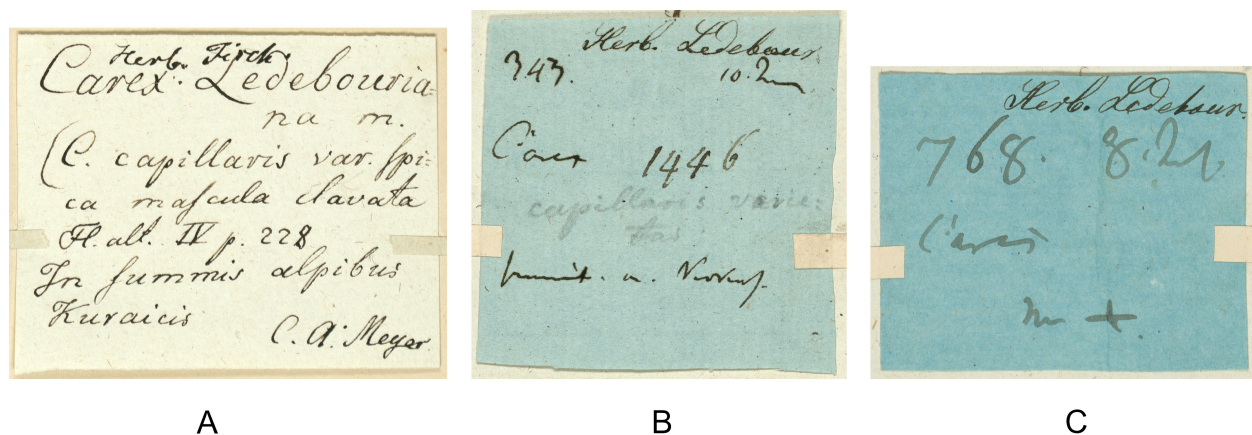 Herb. Fisch.
Carex Ledebouria=
na m.
(C. capillaris var. spi=
ca mascula clavata
Fl. alt. IV p. 228
In summis alpibus
Kuraicis
C. A. Meyer
A
Herb. Ledebour.
343. 10.
Carex 1446
capillaris varie=
tas
B
Herb. Ledebour.
768. 8.
Carex
C